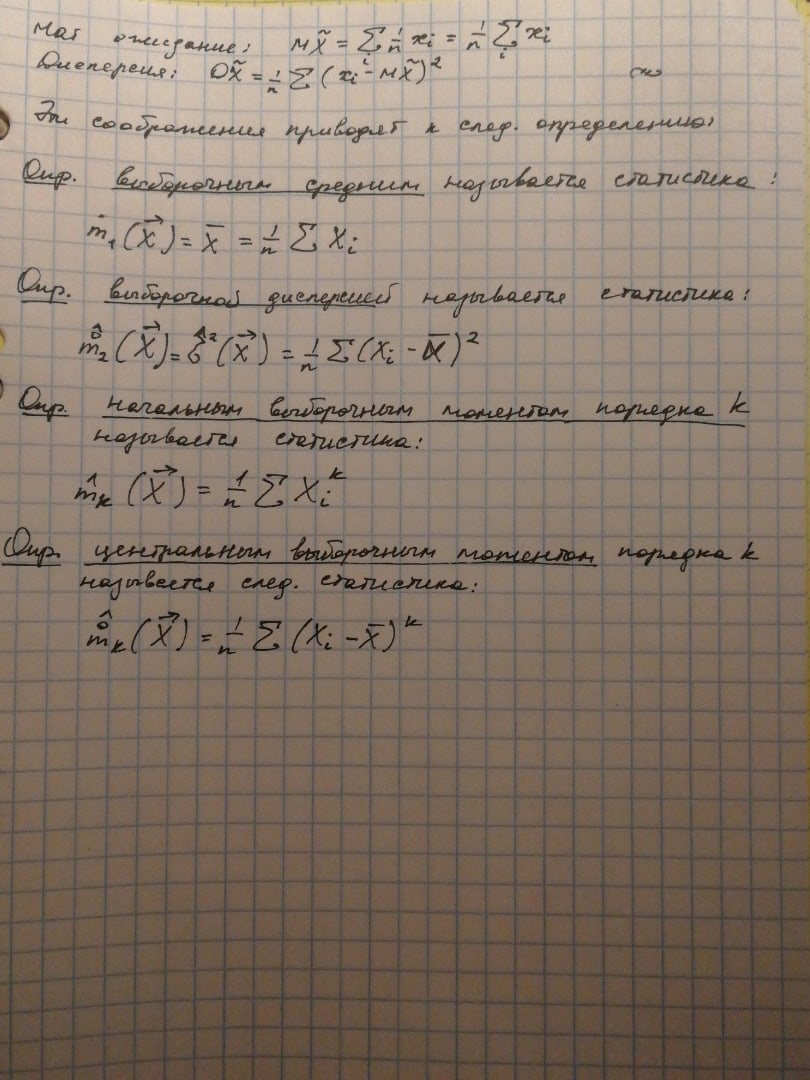 Мат ожидание: MX̃ = Σᵢ 1/n xᵢ = 1/n Σᵢ xᵢ
Дисперсия: DX̃ = 1/n Σ (xᵢ - MX̃)²
Эти соображения приводят к след. определению:
Опр. выборочным средним называется статистика:
m̂₁(X⃗) = X̄ = 1/n Σ Xᵢ
Опр. выборочной дисперсией называется статистика:
m̊̂₂(X⃗) = σ̂²(X⃗) = 1/n Σ (Xᵢ - X̄)²
Опр. начальным выборочным моментом порядка k
называется статистика:
m̂ₖ(X⃗) = 1/n Σ Xᵢᵏ
Опр. центральным выборочным моментом порядка k
называется след. статистика:
m̊̂ₖ(X⃗) = 1/n Σ (Xᵢ - X̄)ᵏ